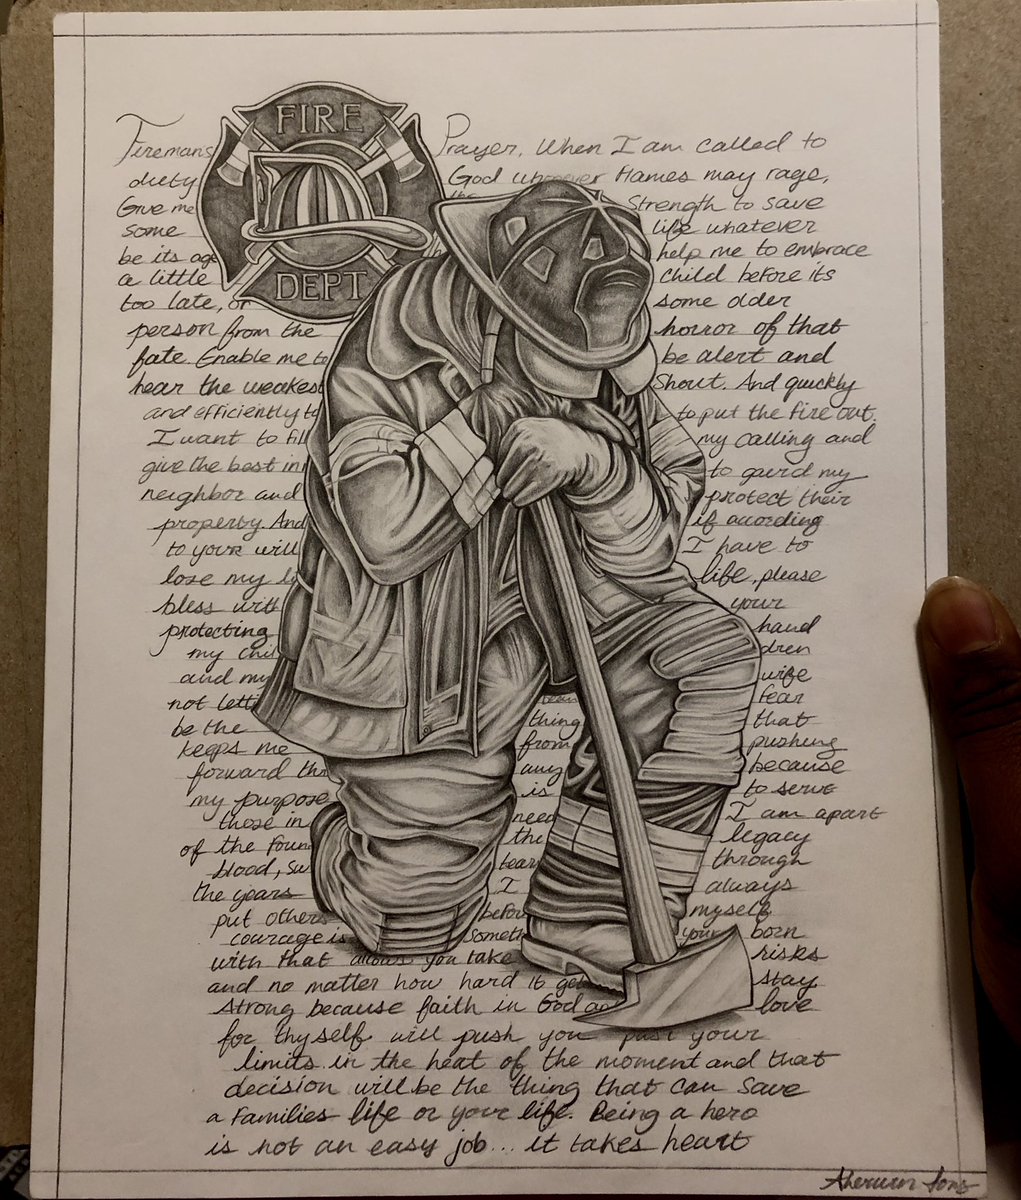 FIRE
DEPT
Firemans Prayer, When I am called to
duty God whenever flames may rage,
Give me the strength to save
some life whatever
be its age help me to embrace
a little child before its
too late, or some older
person from the horror of that
fate. Enable me to be alert and
hear the weakest shout. And quickly
and efficiently to put the fire out.
I want to fill my calling and
give the best in to gaurd my
neighbor and protect their
property And if acording
to your will I have to
lose my life, please
bless with your
protecting hand
my children
and my wife
not letting fear
be the thing that
keeps me from pushing
forward any because
my purpose is to serve
those in need I am apart
of the the legacy
blood, tears through
the years I always
put others before myself
courage is something your born
with that allows you take risks
and no matter how hard it gets stay
strong because faith in God and love
for thyself will push you past your
limits in the heat of the moment and that
decision will be the thing that can save
a families life or your life. Being a hero
is not an easy job... it takes heart